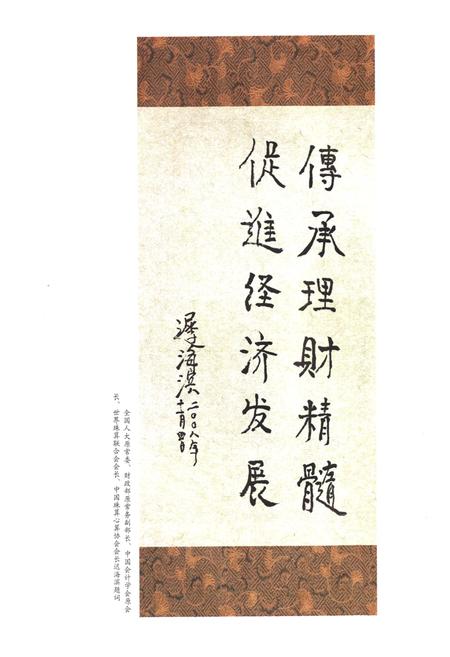 傳承理財精髓
促進经济发展
遲海濱二〇〇八年
十一月四日
全国人大原常委、财政部原常务副部长、中国会计学会原会
长、世界珠算联合会会长、中国珠算心算协会会长迟海滨题词